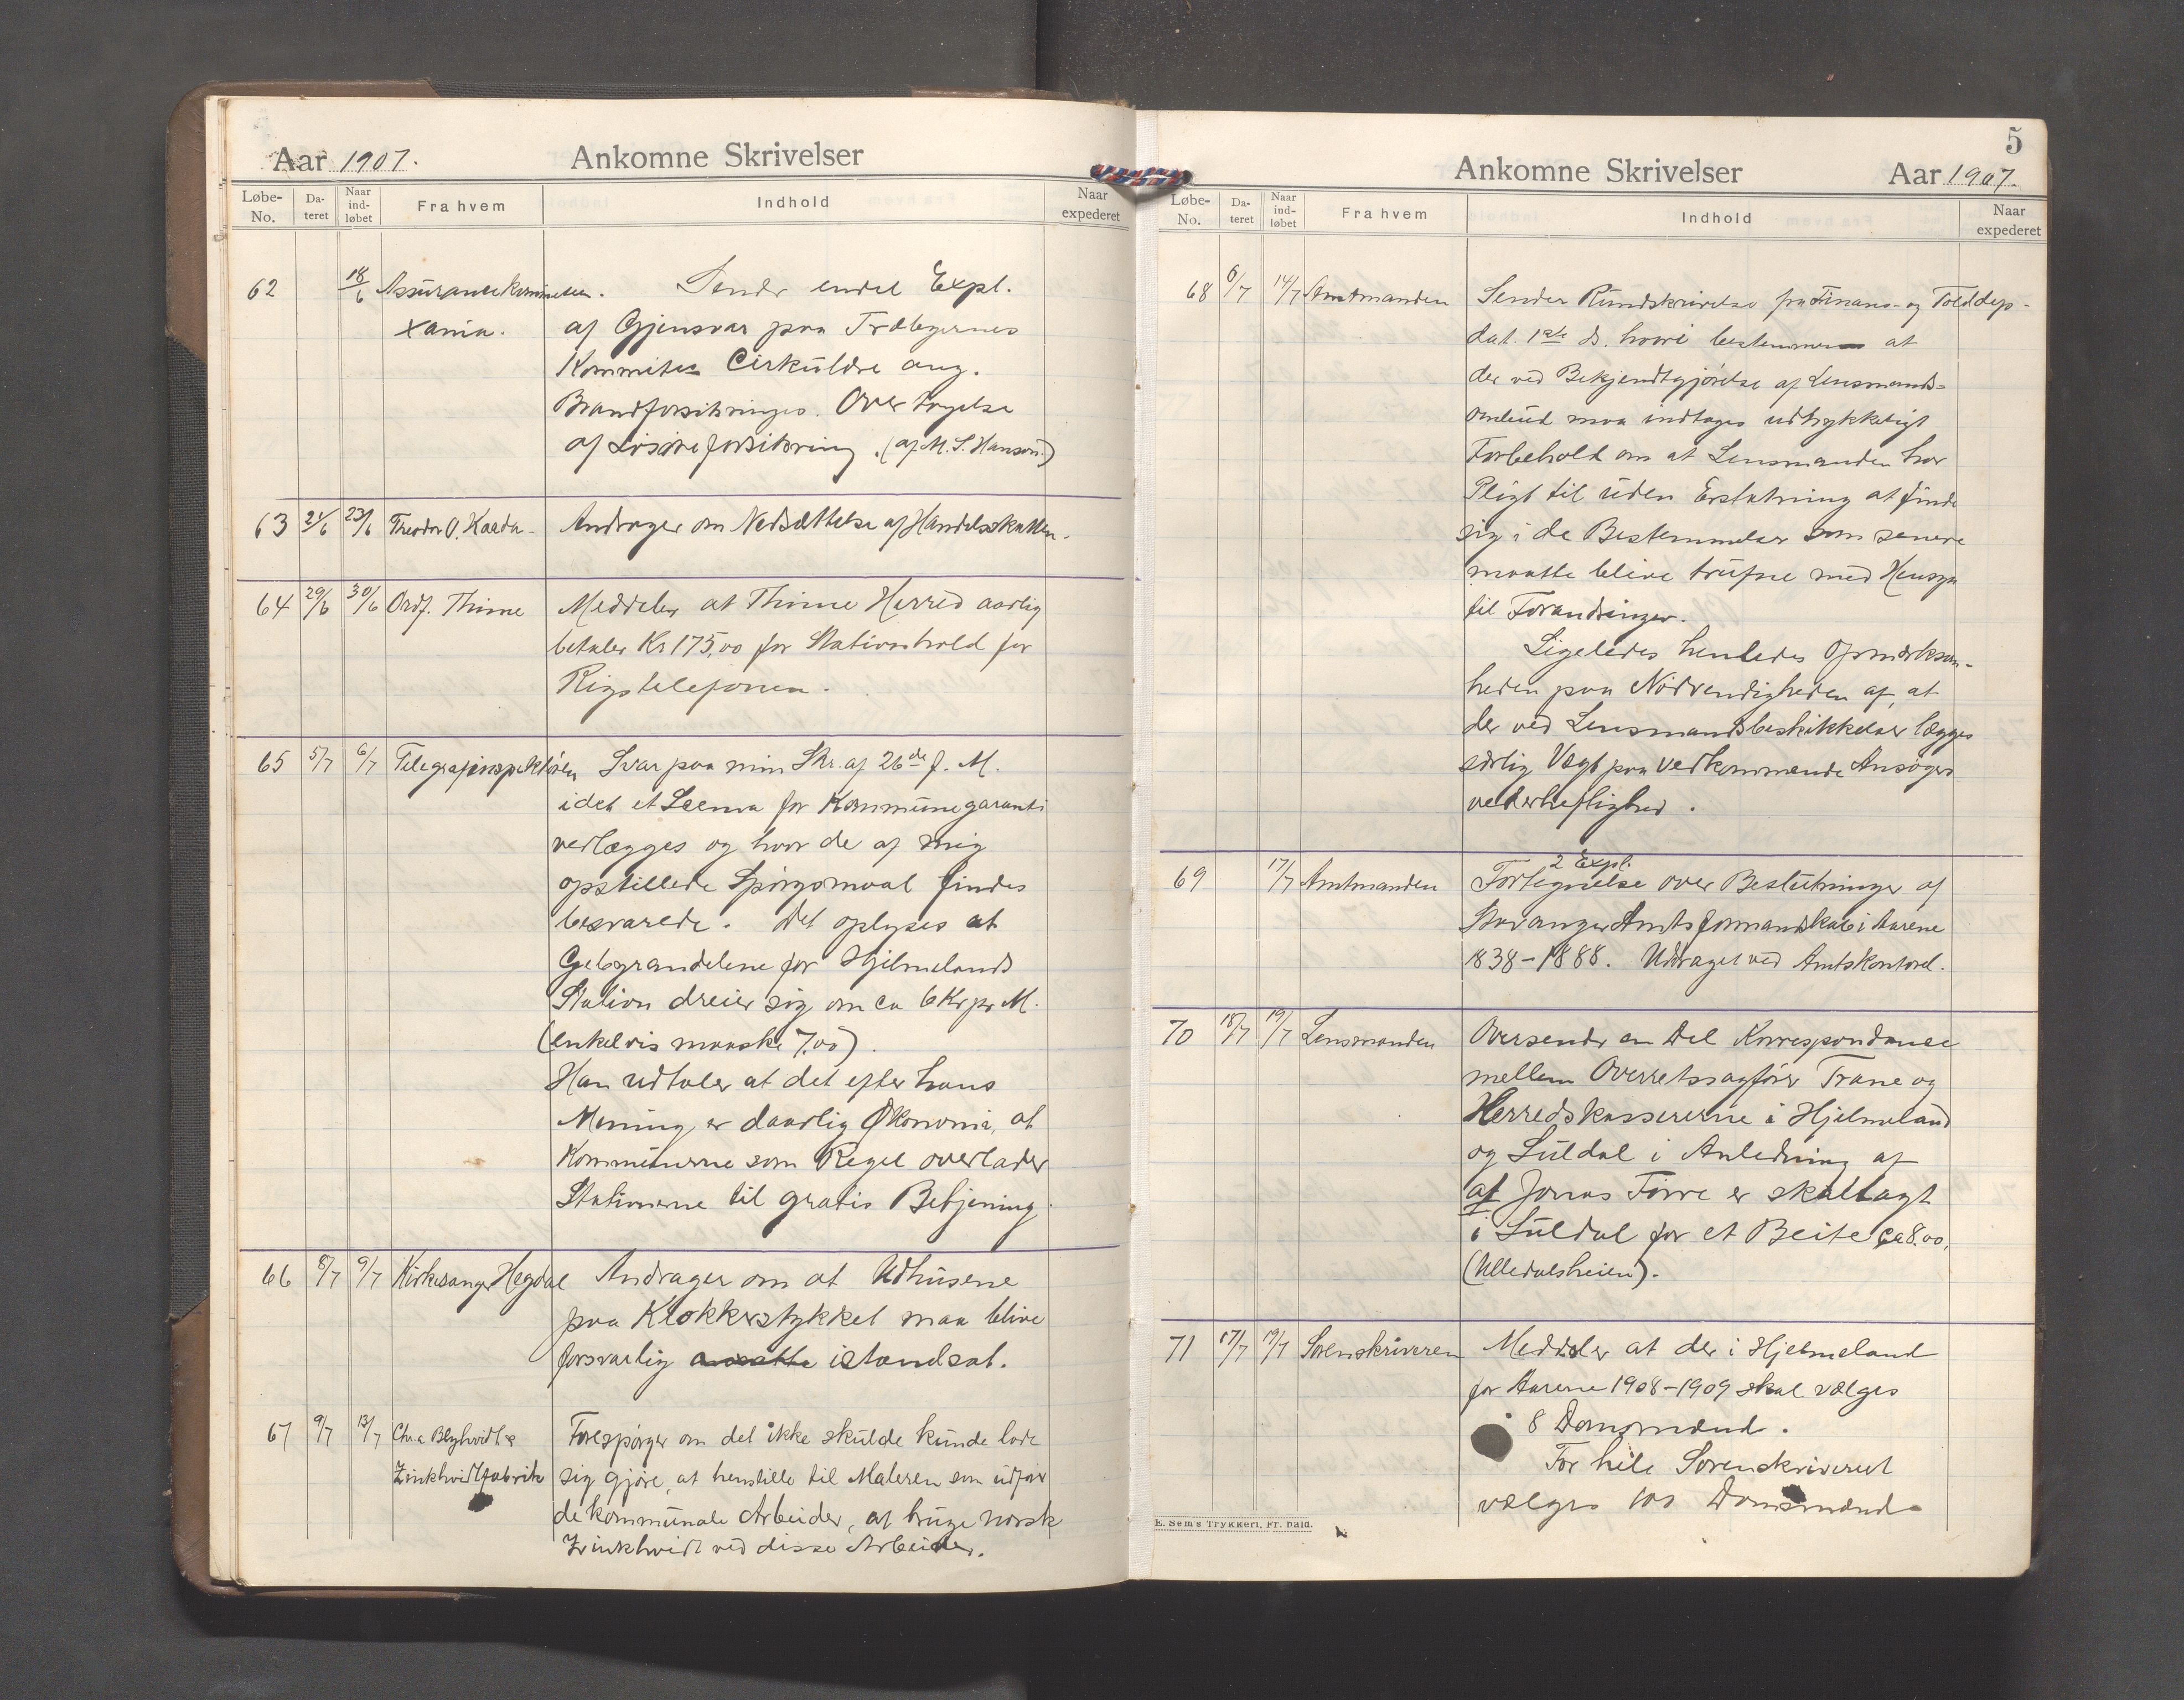 Aar 1907.
Ankomne Skrivelser
Løbe-No. Da-teret Naar ind-løbet Fra hvem Indhold Naar expederet
62 18/6 Assurancekomiteen. Sendr endel Expl.
Xania. af Gjensvar paa Træbyernes
Kommites Cirkulære ang.
Brandforsikringes. Overtagelse
af Løsøreforsikring. (af M. S. Hanson)
63 21/6 23/6 Theodor O. Kaada- Andrager om Nedsættelse af Handelsskatten.
64 29/6 30/6 Ordf. Thime Meddeler at Thime Herred aarlig
betaler Kr 175,00 for Stationhold for
Rigstelefonen.
65 5/7 6/7 Telegrafinspektøren Svar paa min Skr. af 26de f. M.
idet et Scema for Kommunegaranti
vedlægges og hvor de af mig
opstillede Spørgsmaal findes
besvarede. Det oplyses at
Gebyrandelene for Hjelmelands
Station dreier sig om ca 6 Kr pr M.
(enkelvis maaske 7,00).
Han udtaler at det efter hans
Mening er daarlig Økonomi, at
Kommunerne som Regel overlader
Stationerne til gratis Betjening.
66 8/7 9/7 Kirkesanger Hegdal Andrager om at Udhusene
paa Klokkerstykket maa blive
forsvarlig istandsat.
67 9/7 13/7 Chra Blyhvidt & Forespørger om det ikke skulde kunde lade
Zinkhvidtfabrik sig gjøre, at henstille til Maleren som udfør
de kommunale Arbeider, at bruge norsk
Zinkhvidt ved disse Arbeider.
5
Ankomne Skrivelser
Aar 1907.
Løbe-No. Da-teret Naar ind-løbet Fra hvem Indhold Naar expederet
68 6/7 14/7 Amtmanden Sender Rundskrivelse fra Finans- og Tolddep-
dat. 1ste ds. hvori bestemmes at
der ved Bekjendtgjørelse af Lensmands-
ombud maa indtages udtrykkeligt
Forbehold om at Lensmanden har
Pligt til uden Erstatning at finde
sig i de Bestemmelser som senere
maatte blive trufne med Hensyn
til Forandringer.
Ligeledes henledes Opmærksom-
heden paa Nødvendigheden af, at
der ved Lensmandsbeskikkelser lægges
særlig Vægt paa vedkommende Ansøgers
vederheftighed.
2 Expl.
69 17/7 Amtmanden Fortegnelse over Beslutninger af
Stavanger Amtsformandskab i Aarene
1838-1888. Uddraget ved Amtskontoret.
70 18/7 19/7 Lensmanden Oversendr en Del Korrespondance
mellem Overretssagfører Trane og
Herredskassererne i Hjelmeland
og Suldal i Anledning af
at Jonas Førre er skatlagt
i Suldal for et Beite ca 8.00,
(Ulledalsheien).
71 17/7 19/7 Sorenskriveren Meddeler at der i Hjelmeland
for Aarene 1908-1909 skal vælges
8 Domsmænd.
For hele Sorenskriveriet
vælges 100 Domsmænd
E. Sem's Trykkeri, Fr. hald.